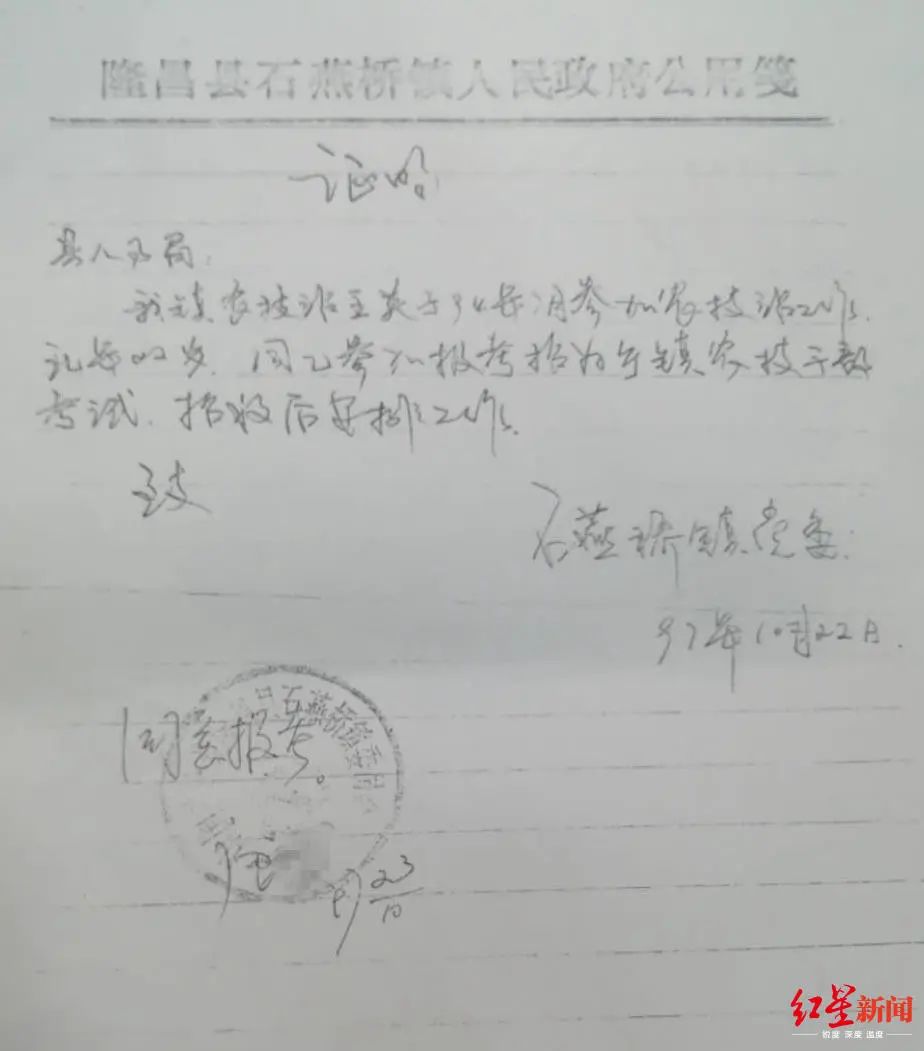 隆昌县石燕桥镇人民政府公用笺
证明
县人事局:
我镇农技站王英于94年 月参加农技站工作,
同意参加报考招为乡镇农技干部
考试。招收后安排工作。
致
石燕桥镇党委:
97年10月22日.
石燕桥镇委
同意报考。
97 23/10
红星新闻
锐度 深度 温度